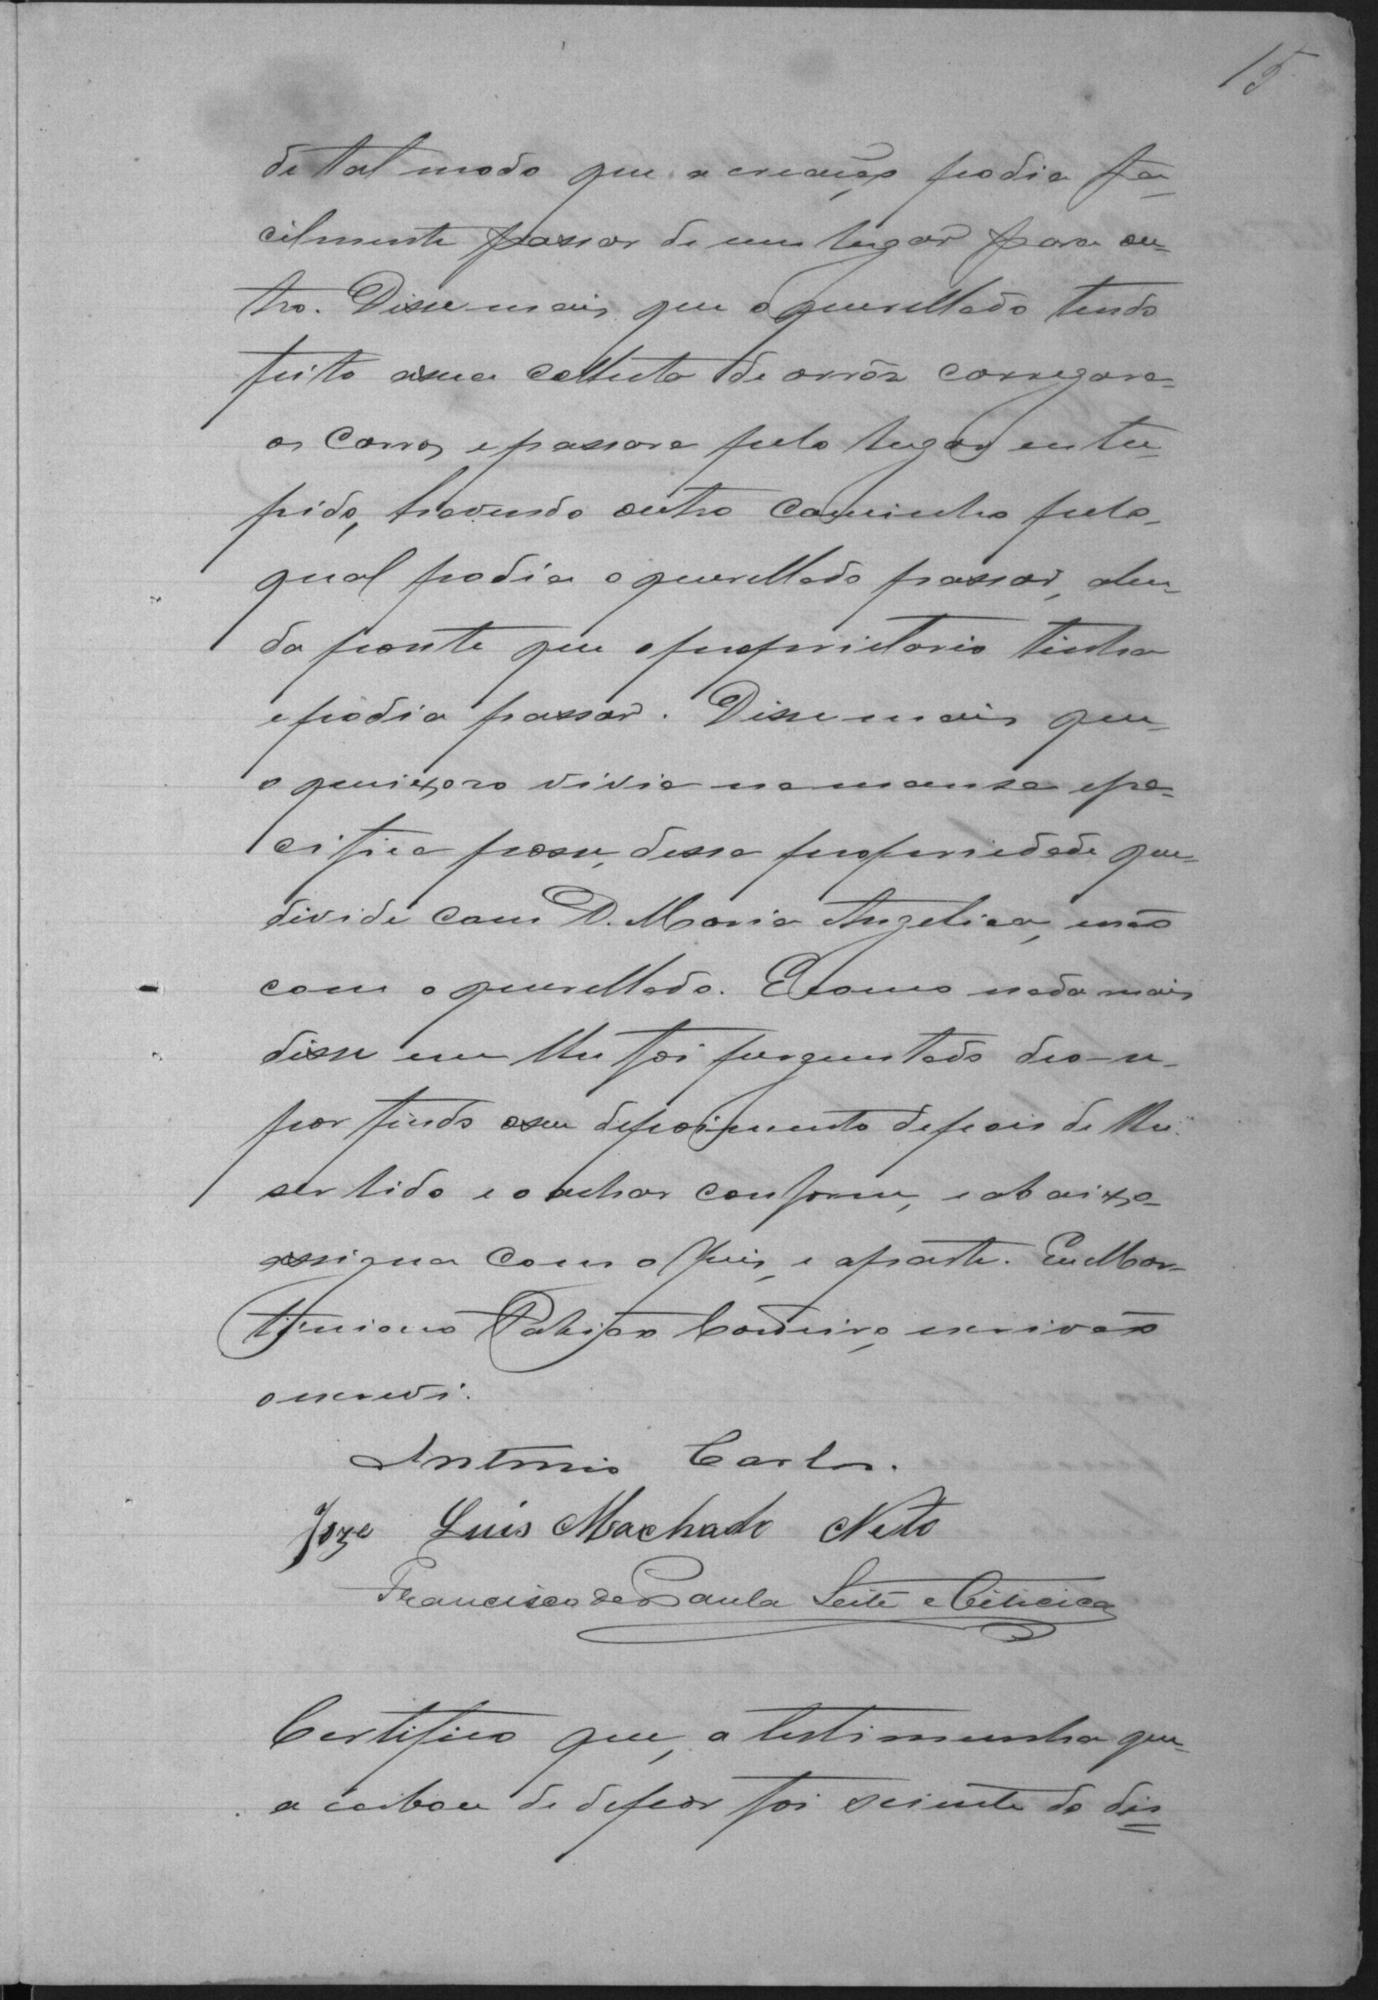 15
de tal modo que a creação podia fa-
cilmente passar de um lugar para ou-
tro. Disse mais que o querellado tendo
feito a sua colheita de arrôz carregara
os carros e passara pelo lugar entu-
pido, havendo outro caminho pelo
qual podia o querellado passar, alem
da ponte que o proprietario tinha
e podia passar. Disse mais que
o queixoso vivia na mansa e pa-
cifica posse dessa propriedade que
divide com D. Maria Angelica, e não
com o querellado. E como nada mais
disse nem lhe foi perguntado deo-se
por findo o seu depoimento depois de lhe
ser lido e o achar conforme, e abaixo
assigna com o Juis, e a parte. Eu Mar-
tiniano Cordeiro, escrivão
o escrevi.
Antonio Carlos.
Joze Luis Machado Neto
Francisco de Paula Leite e Oiticica
Certifico que, a testimunha que
acabou de depor foi sciente do dis